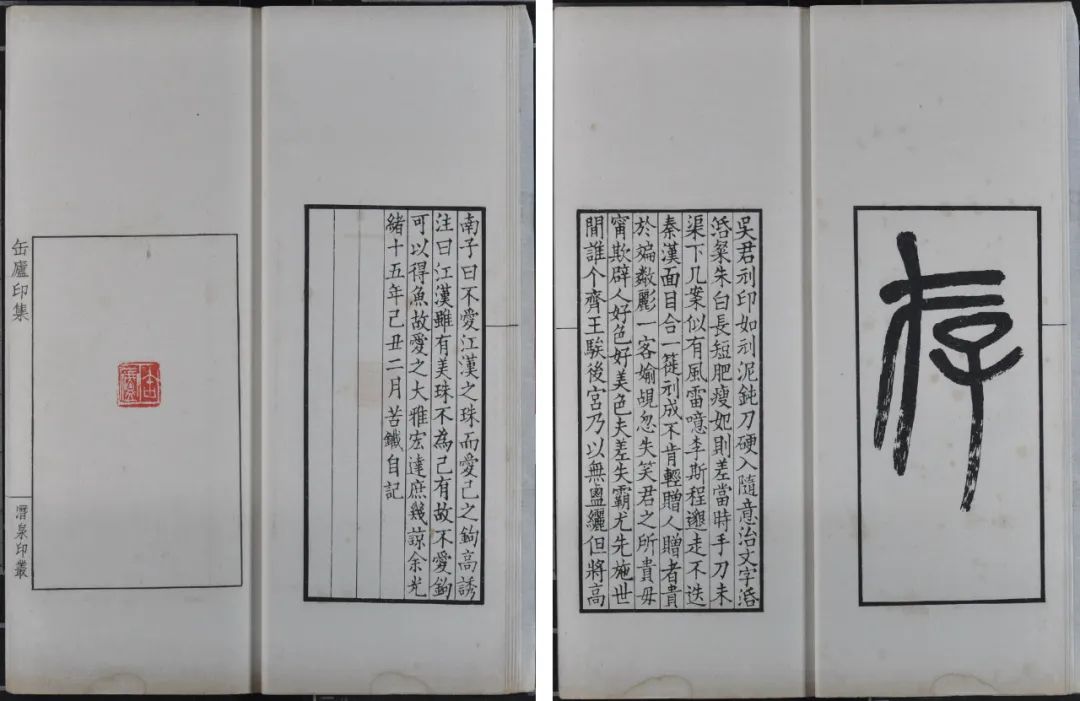 存
吳君刻印如刻泥鈍刀硬入隨意治文字
粲朱白長短肥瘦妃則差當時手刀未
渠下几案似有風雷噫李斯程邈走不迭
秦漢面目合一簁刻成不肯輕贈人贈者貴
於一客媮覘忽失笑君之所貴毋
甯欺辟人好色好美色夫差失霸尤先施世
間誰个齊王騃後宮乃以無鹽纚但將高
南子曰不愛江漢之珠而愛己之鉤高誘
注曰江漢雖有美珠不為己有故不愛鉤
可以得魚故愛之大雅宏達庶幾諒余光
緒十五年己丑二月苦鐵自記
缶廬印集
潛泉印叢